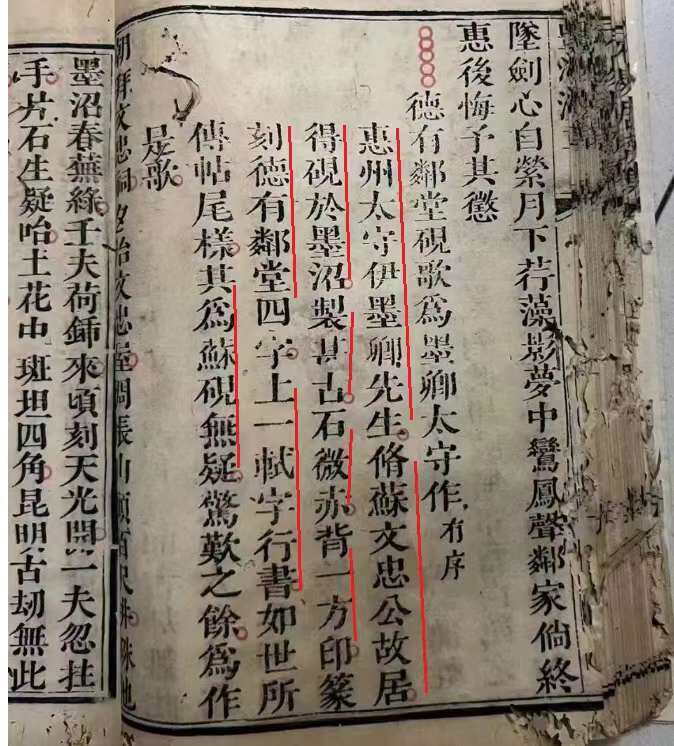 墜劍心自縈月下荇藻影夢中鸞鳳聲鄰家倘終
惠後悔予其懲
德有鄰堂硯歌爲墨卿太守作有序
惠州太守伊墨卿先生脩蘇文忠公故居
得硯於墨沼製甚古石微赤背一方印篆
刻德有鄰堂四字上一軾字行書如世所
傳帖尾樣其爲蘇硯無疑驚歎之餘爲作
是歌
朝拜文忠祠
墨沼春蕪綠壬夫荷鍤來頃刻天光開一夫忽拄
手片石生疑咍土花中斑坦四角昆明古劫無此